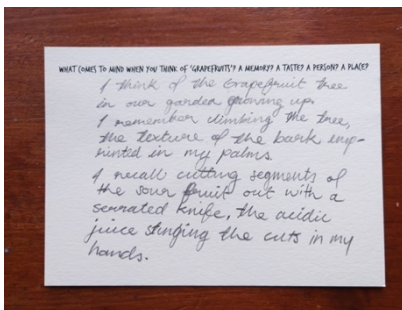 WHAT COMES TO MIND WHEN YOU THINK OF 'GRAPEFRUITS'? A MEMORY? A TASTE? A PERSON? A PLACE?
I think of the Grapefruit tree
in our garden growing up.
I remember climbing the tree,
the texture of the bark imp-
rinted in my palms.
I recall cutting segments of
the sour fruit out with a
serrated knife, the acidic
juice stinging the cuts in my
hands.